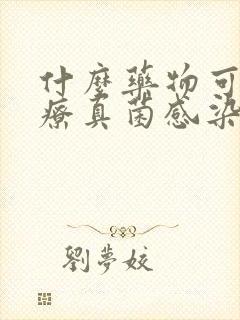 什麼藥物可
療真菌感染
劉夢姣